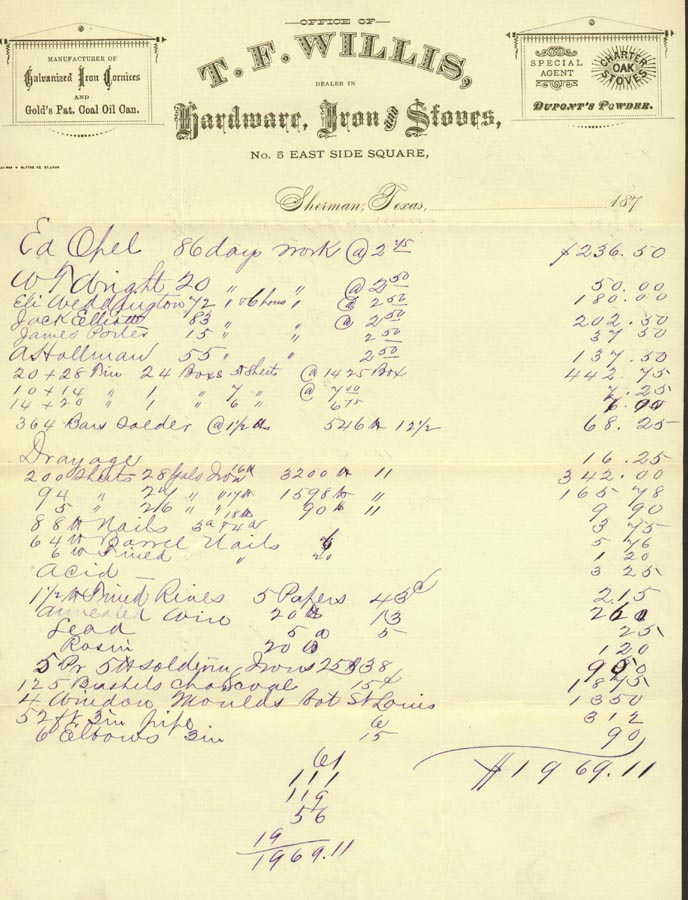 OFFICE OF
T. F. WILLIS,
DEALER IN
Hardware, Iron and Stoves,
No. 5 EAST SIDE SQUARE,
MANUFACTURER OF
Galvanized Iron Cornices
AND
Gold's Pat. Coal Oil Can.
SPECIAL AGENT
CHARTER OAK STOVES
DUPONT'S POWDER.
Sherman, Texas, 187
Ed Opel 86 days work @ 2 75 $236.50
W T Wright 20 " " @ 2 50 50.00
Eli Weddington 72 " & 6 hours " @ 2 50 180.00
Jack Elliott 83 " " @ 2 50 202.50
James Porter 15 " " 2 50 37 50
A Hollman 55 " " 2 50 137.50
20 + 28 Tin 24 Boxs Sheets @ 14 25 Box 442.75
10 + 14 " 1 " 7 " @ 7 00 7.25
14 + 20 " 1 " 6 " 6 75 6.90
364 Bars Solder @ 1 1/2 lb 546 lb 12 1/2 68.25
Drayage 16.25
200 Sheets 28 Galv Iron 16 lb 3200 lb 11 342.00
94 " 27 " " 17 lb 1598 lb " 165 78
5 " 26 " " 18 lb 90 lb 11 9 90
8 lb Nails 3d & 4d 3 75
64 lb Barrel Nails 9 5 76
6 lb Tined " 20 1 20
Acid 3 25
1 1/2 lb Tined Rives 5 Papers 43 c 2.15
Annealed Wire 20 lb 13 2 60
Lead 5 lb 5 25
Rosin 20 lb 1 20
5 Pr 5 lb Solding Irons 25 lb 38 9 50
125 Bushels Charcoal 15 c 18 75
4 Window Moulds bot St Louis 13 50
52 ft 3 in pipe 6 3 12
6 Elbows 3 in 15 90
$1969.11
61
111
119
56
19
1969.11